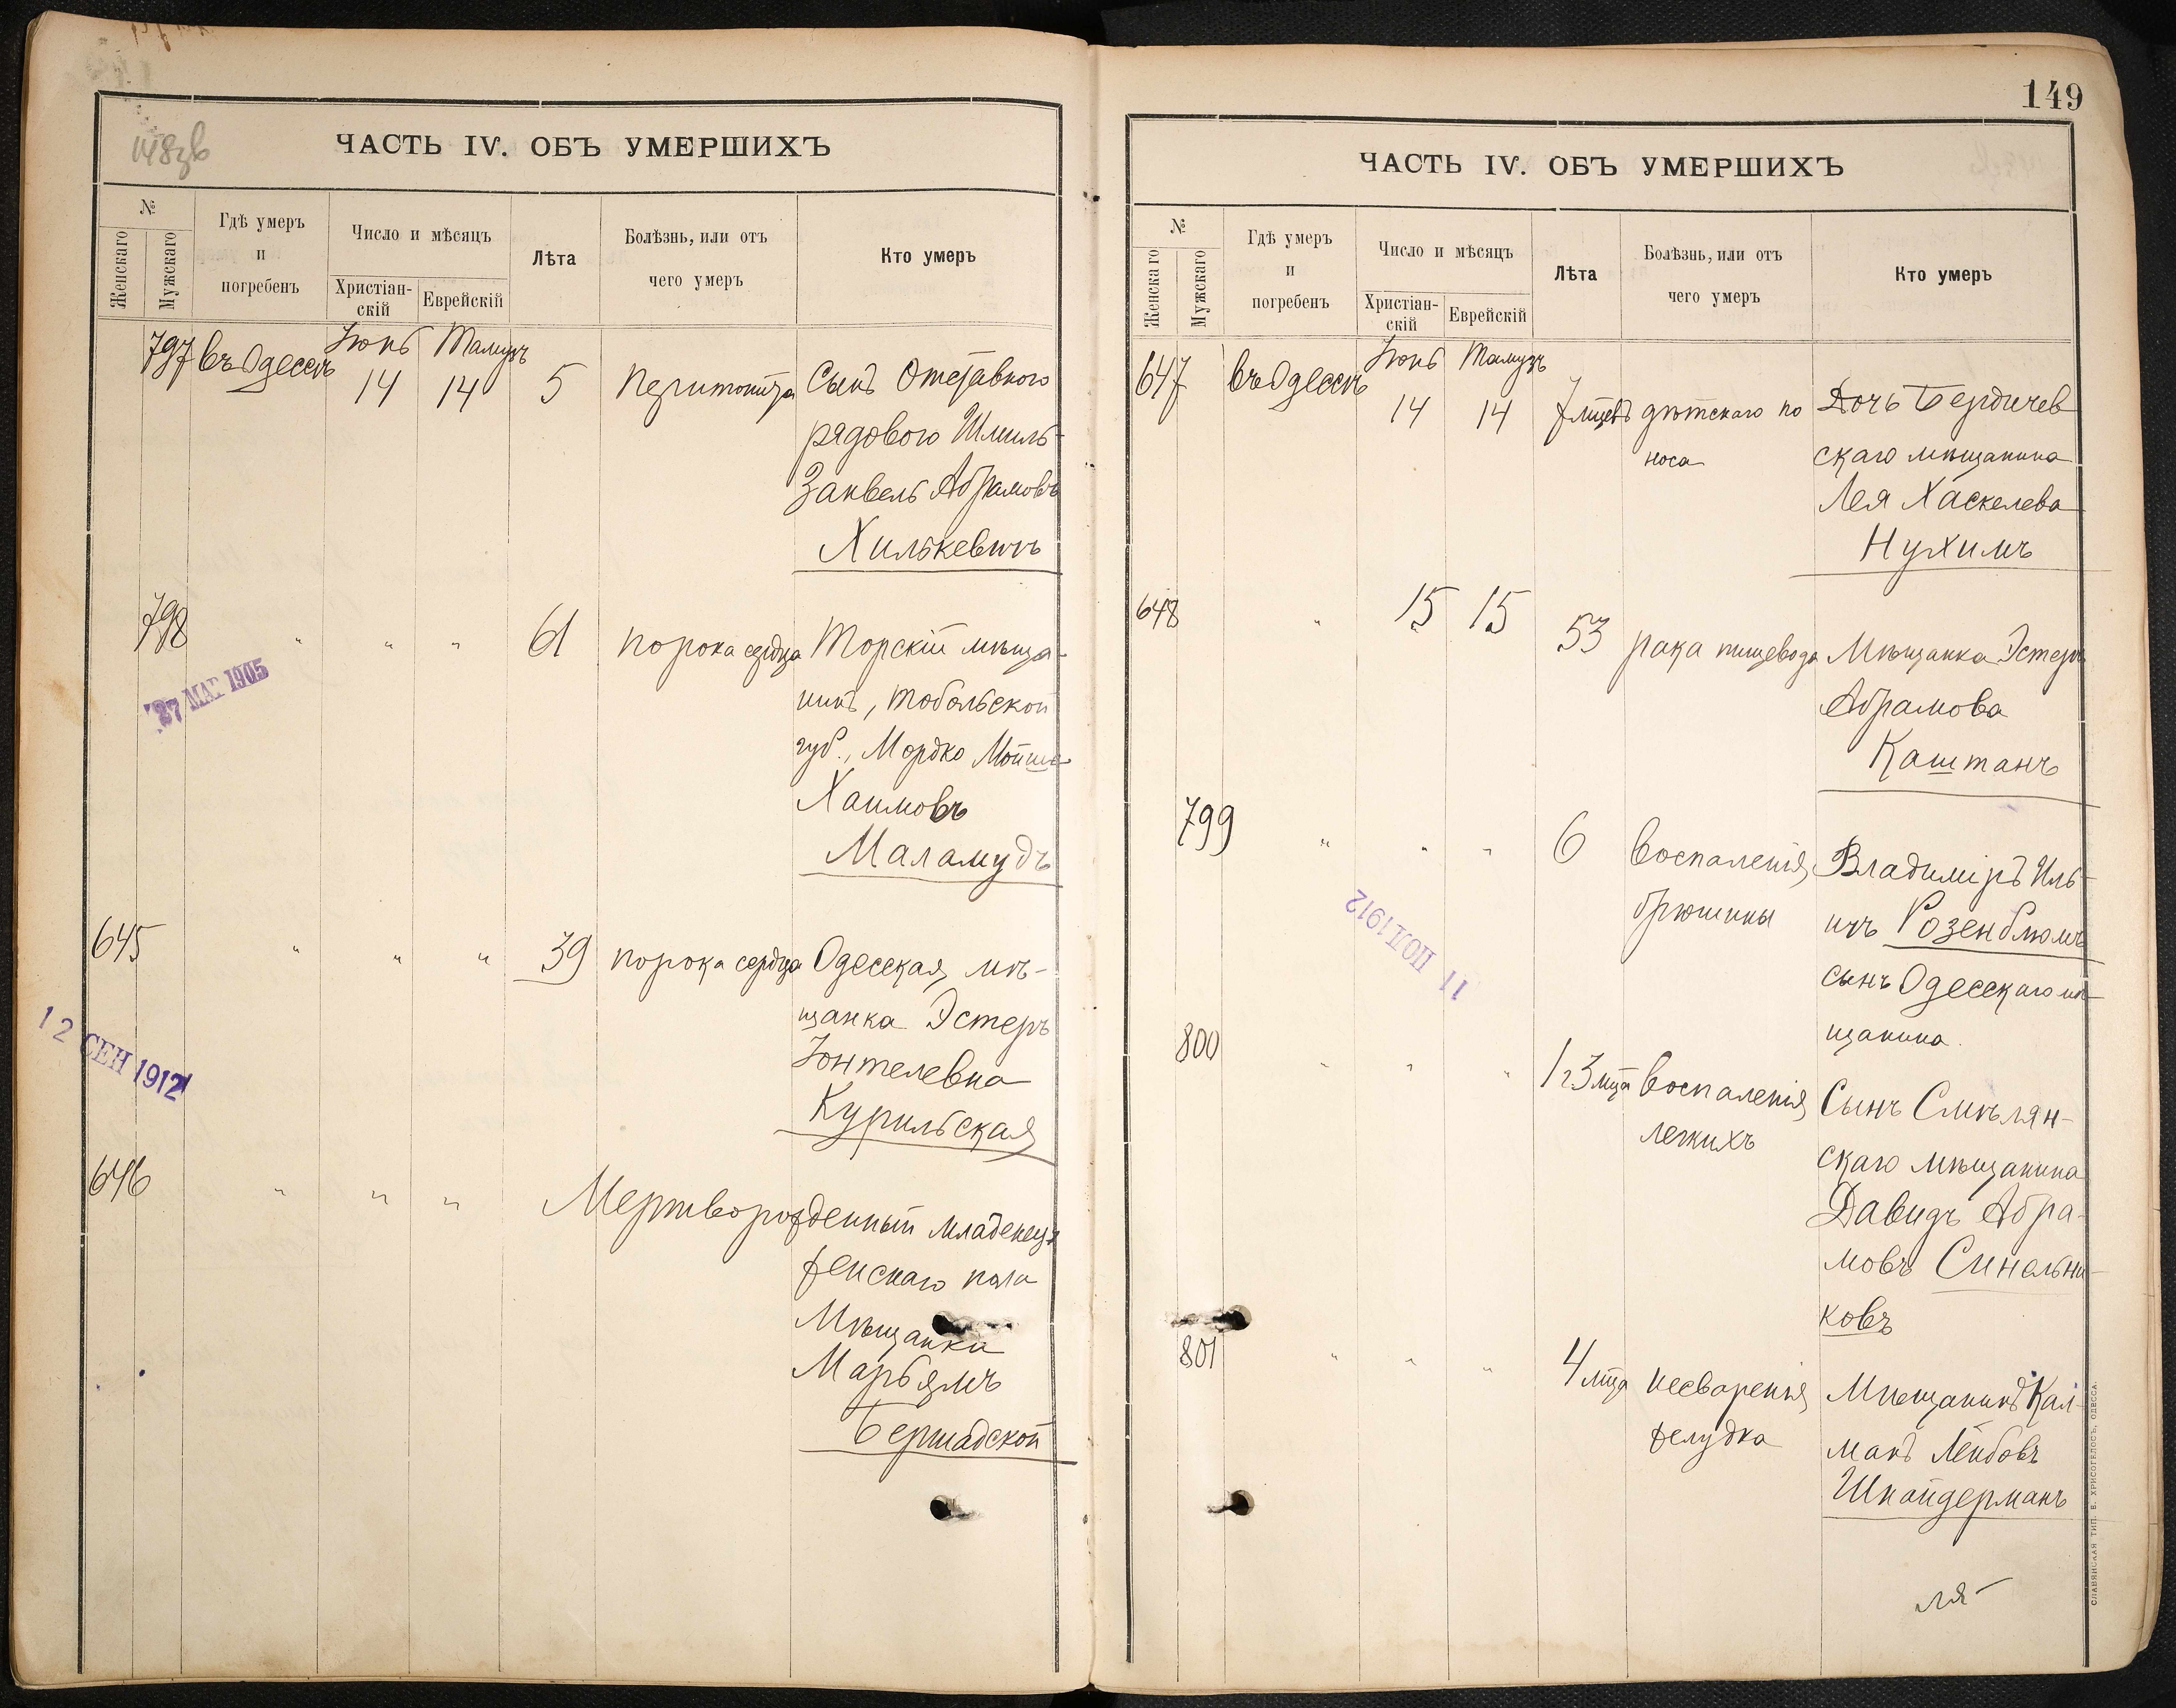 148 зв
ЧАСТЬ IV. ОБЪ УМЕРШИХЪ
№
Женскаго
Мужскаго
Гдѣ умеръ
и
погребенъ
Число и мѣсяцъ
Христіан-
скій
Еврейскій
Лѣта
Болѣзнь, или отъ
чего умеръ
Кто умеръ
797 въ Одессѣ Іюнь Тамузъ
14 14 5 перитонита Сынъ Отставного
рядового Шмиль-
Занвель Абрамовъ
Хилькевичъ
798 " " " 61 порока сердца Торскій мѣща-
нинъ, Тобольской
губ., Мордко Мойше
Хаимовъ
Маламудъ
27 МАР 1905
645 " " " 39 порока сердца Одесская мѣ-
щанка Эстеръ
Іонтелевна
Курильская
12 СЕН 1912
646 " " " Мертворожденный младенецъ
женскаго пола
Мѣщанки
Марьямъ
Бершадской
149
ЧАСТЬ IV. ОБЪ УМЕРШИХЪ
№
Женскаго
Мужскаго
Гдѣ умеръ
и
погребенъ
Число и мѣсяцъ
Христіан-
скій
Еврейскій
Лѣта
Болѣзнь, или отъ
чего умеръ
Кто умеръ
647 въ Одессѣ Іюнь Тамузъ
14 14 7 мцевъ дѣтскаго по Дочь Бердичев
носа скаго мѣщанина
Лея Хаскелева
Нухимъ
648 " 15 15 53 рака пищевода Мѣщанка Эстеръ
Абрамова
Каштанъ
799 " " " 6 воспаленія Владиміръ Иль-
брюшины ичъ Розенблюмъ
сынъ Одесскаго мѣ-
щанина.
11 ИЮЛ 1912
800 " " " 1 г 3 мца воспаленія Сынъ Смѣлян-
легкихъ скаго мѣщанина
Давидъ Абра-
мовъ Синельни-
ковъ
801 " " " 4 мца несваренія Мѣщанинъ Кал-
желудка манъ Лейбовъ
Шнайдерманъ
СЛАВЯНСКАЯ ТИП. Е. ХРИСОГЕЛОСЪ, ОДЕССА.